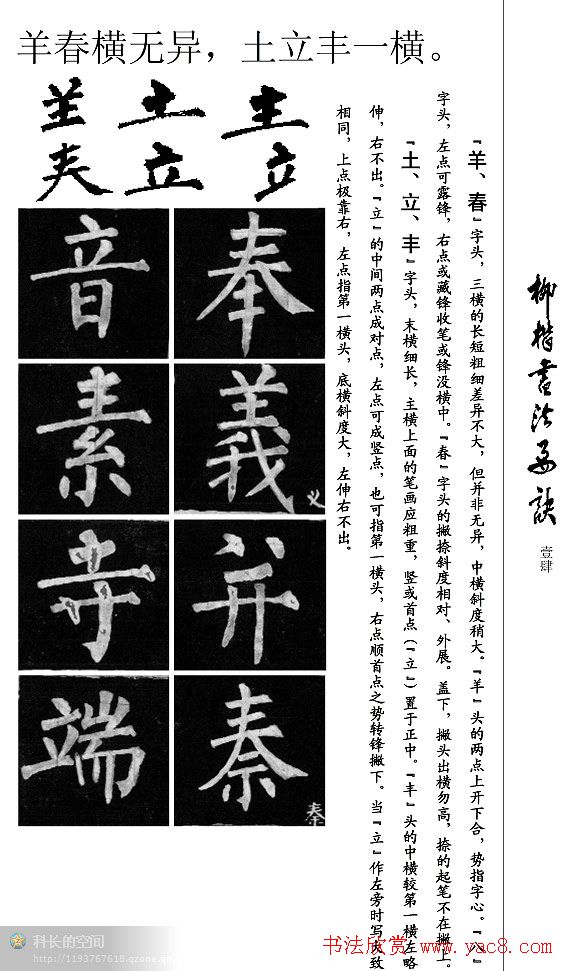 羊春横无异，土立丰一横。
羊 土 丰
春 立 立
音 奉
素 義 义
寺 并
端 秦 秦
『羊、春』字头，三横的长短粗细差异不大，但并非无异，中横斜度稍大。『羊』头的两点上开下合，势指字心。『八』
字头，左点可露锋，右点或藏锋收笔或锋没横中。『春』字头的撇捺斜度相对、外展。盖下，撇头出横勿高，捺的起笔不在撇上。
『土、立、丰』字头，末横细长，主横上面的笔画应粗重，竖或首点（『立』）置于正中。『丰』头的中横较第一横左略
伸，右不出。『立』的中间两点成对点，左点可成竖点，也可指第一横头，右点顺首点之势转锋撇下。当『立』作左旁时写法大致
相同，上点极靠右，左点指第一横头，底横斜度大，左伸右不出。
柳楷书法要诀
壹肆
科长的空间
http://1193767618.qzone.qq.com
书法欣赏 www.yac8.com